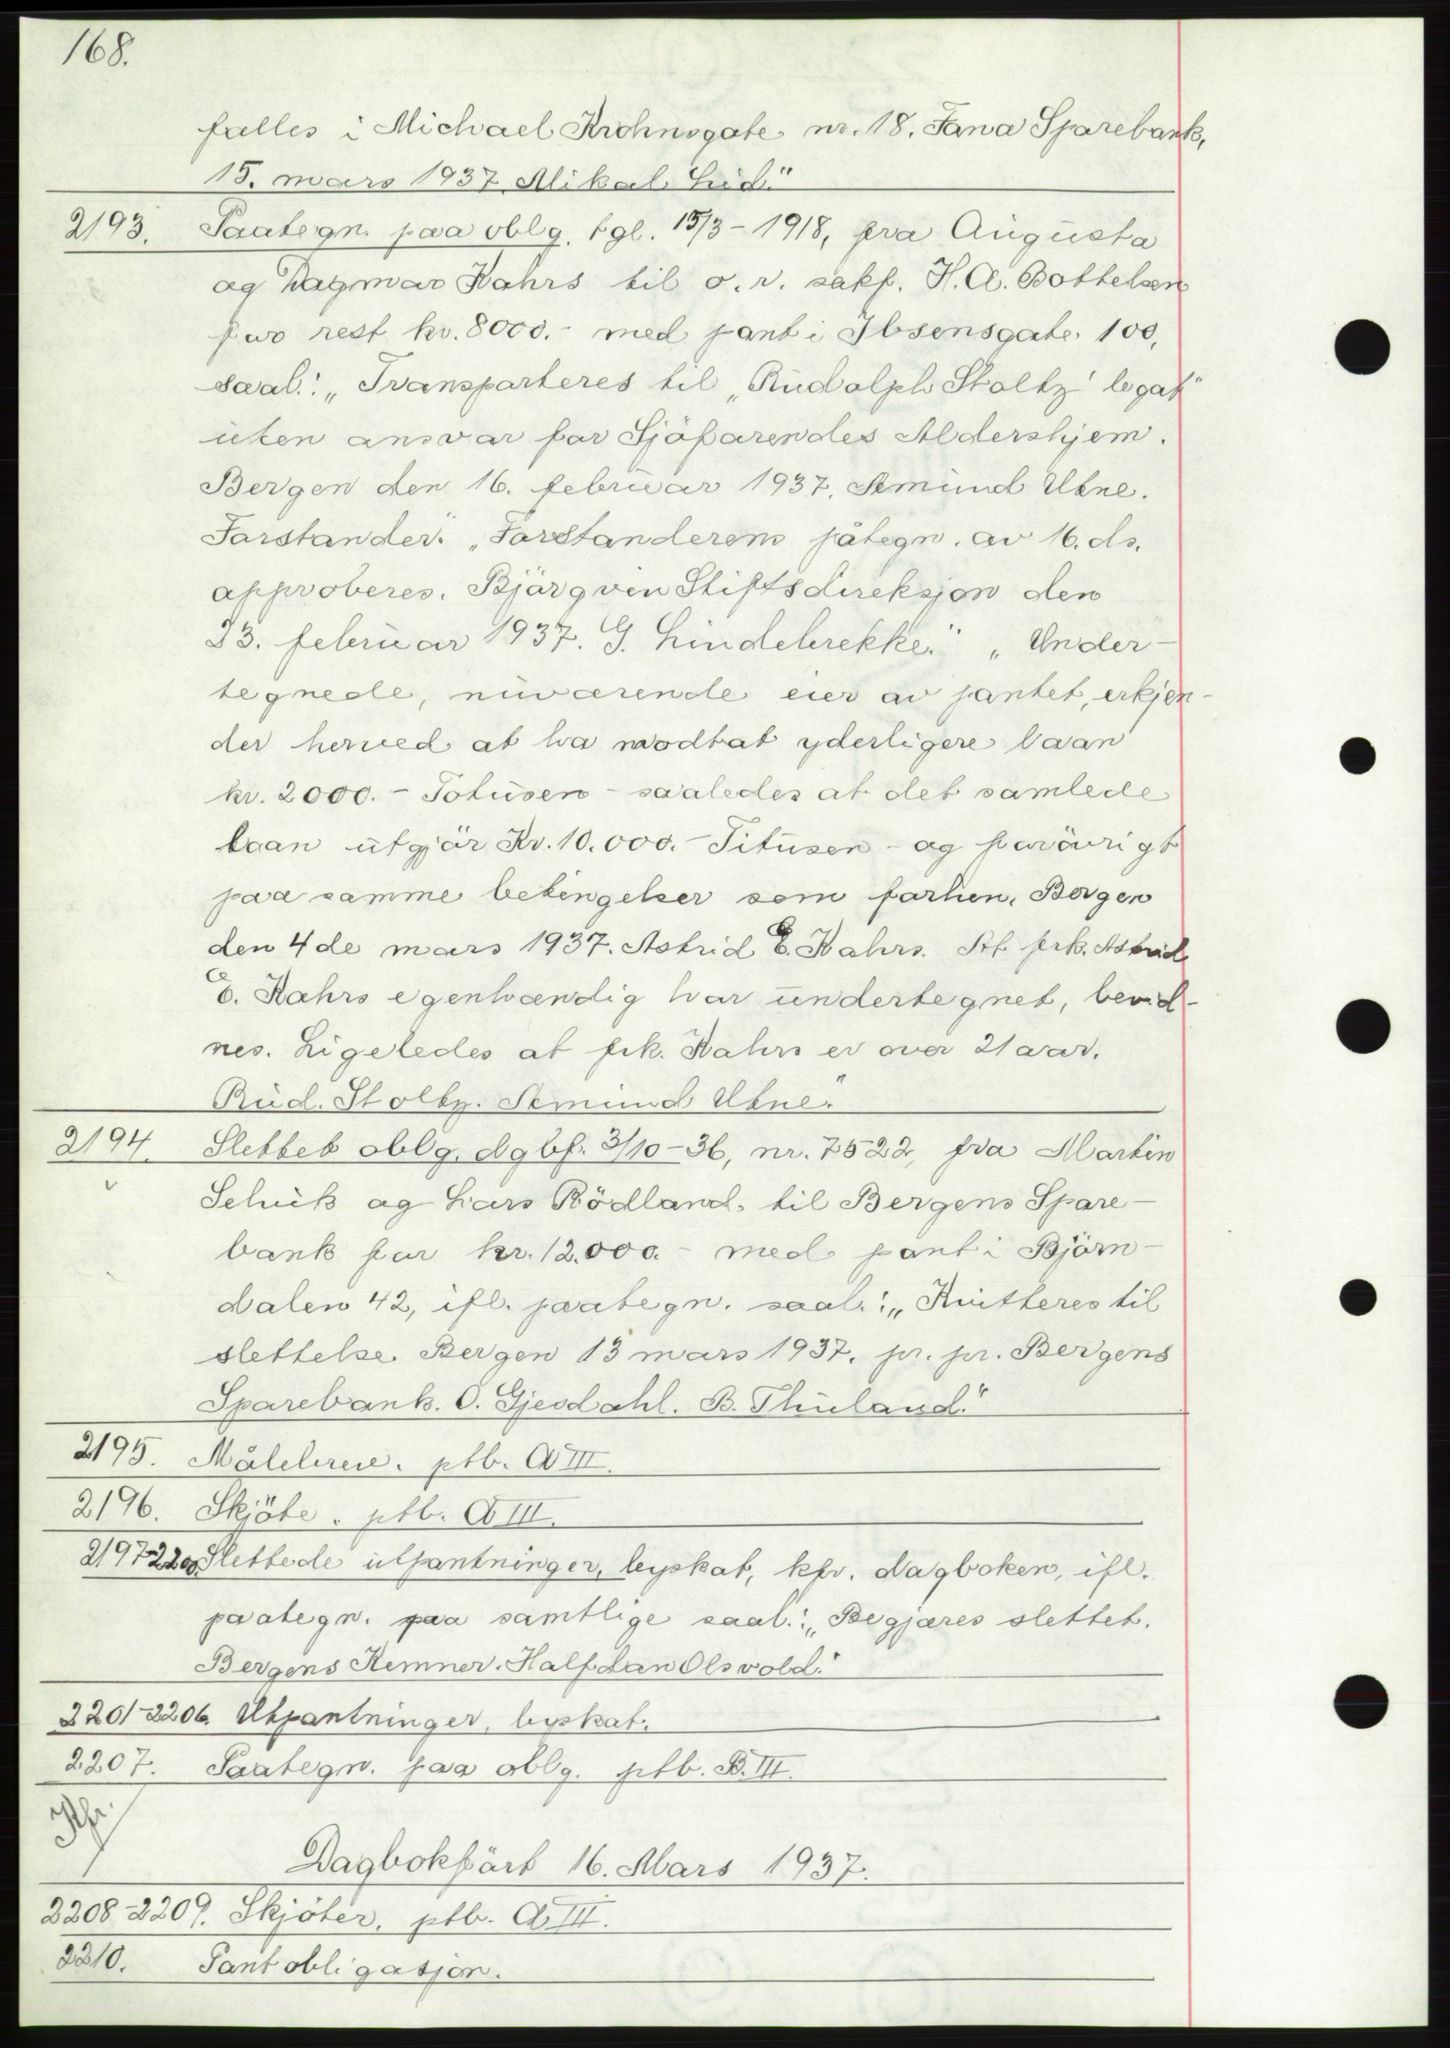 168.
falles i Michael Krohnsgate nr. 18. Fana Sparebank,
15. mars 1937. Mikal Lid."
2193. Paategn. paa oblg. tgl. 15/3-1918, fra Augusta
og Dagmar Kahrs til o.r. sakf. H.A. Bottelsen
for rest kr. 8000.- med pant i Ibsensgate 100,
saal.: „Transporteres til „Rudolph Stoltz' legat"
uten ansvar for Sjöfarendes Aldershjem.
Bergen den 16. februar 1937. Semund Utne.
Forstander." „Forstanderens påtegn. av 16. ds.
approberes. Bjørgvin Stiftsdireksjon den
23. februar 1937. G. Lindebrekke." „Under-
tegnede, nuværende eier av pantet, erkjen-
der herved at ha modtat yderligere laan
kr. 2000. - Totusen - saaledes at det samlede
laan utgjör Kr. 10.000. - Titusen - og forövrigt
paa samme betingelser som forhen. Bergen
den 4de mars 1937. Astrid E. Kahrs. At frk. Astrid
E. Kahrs egenhændig har undertegnet, bevid-
nes. Ligeledes at frk. Kahrs er over 21 aar.
Rud. Stoltz. Semund Utne."
2194. Slettet oblg. dgbf. 3/10-36, nr. 7522, fra Martin
Schüß og Lars Rödland til Bergens Spare-
bank for kr. 12.000.- med pant i Björn-
dalen 42, ifl. paategn. saal.: „Kvitteres til
slettelse Bergen 13 mars 1937. pr. pr. Bergens
Sparebank. O. Gjesdahl. B. Thuland."
2195. Målebrev. ptb. A III.
2196. Skjöte. ptb. A III.
2197-2200. Slettede utpantninger, byskat, kfr. dagboken, ifl.
paategn. paa samtlige saal.: „Begjæres slettet.
Bergens Kemner. Halfdan Olsvold."
2201-2206. Utpantninger, byskat.
2207. Paategn. paa oblg. ptb. B. III.
Kfr.
Dagbokfört 16. Mars 1937.
2208-2209. Skjöter. ptb. A III.
2210. Pantobligasjon.